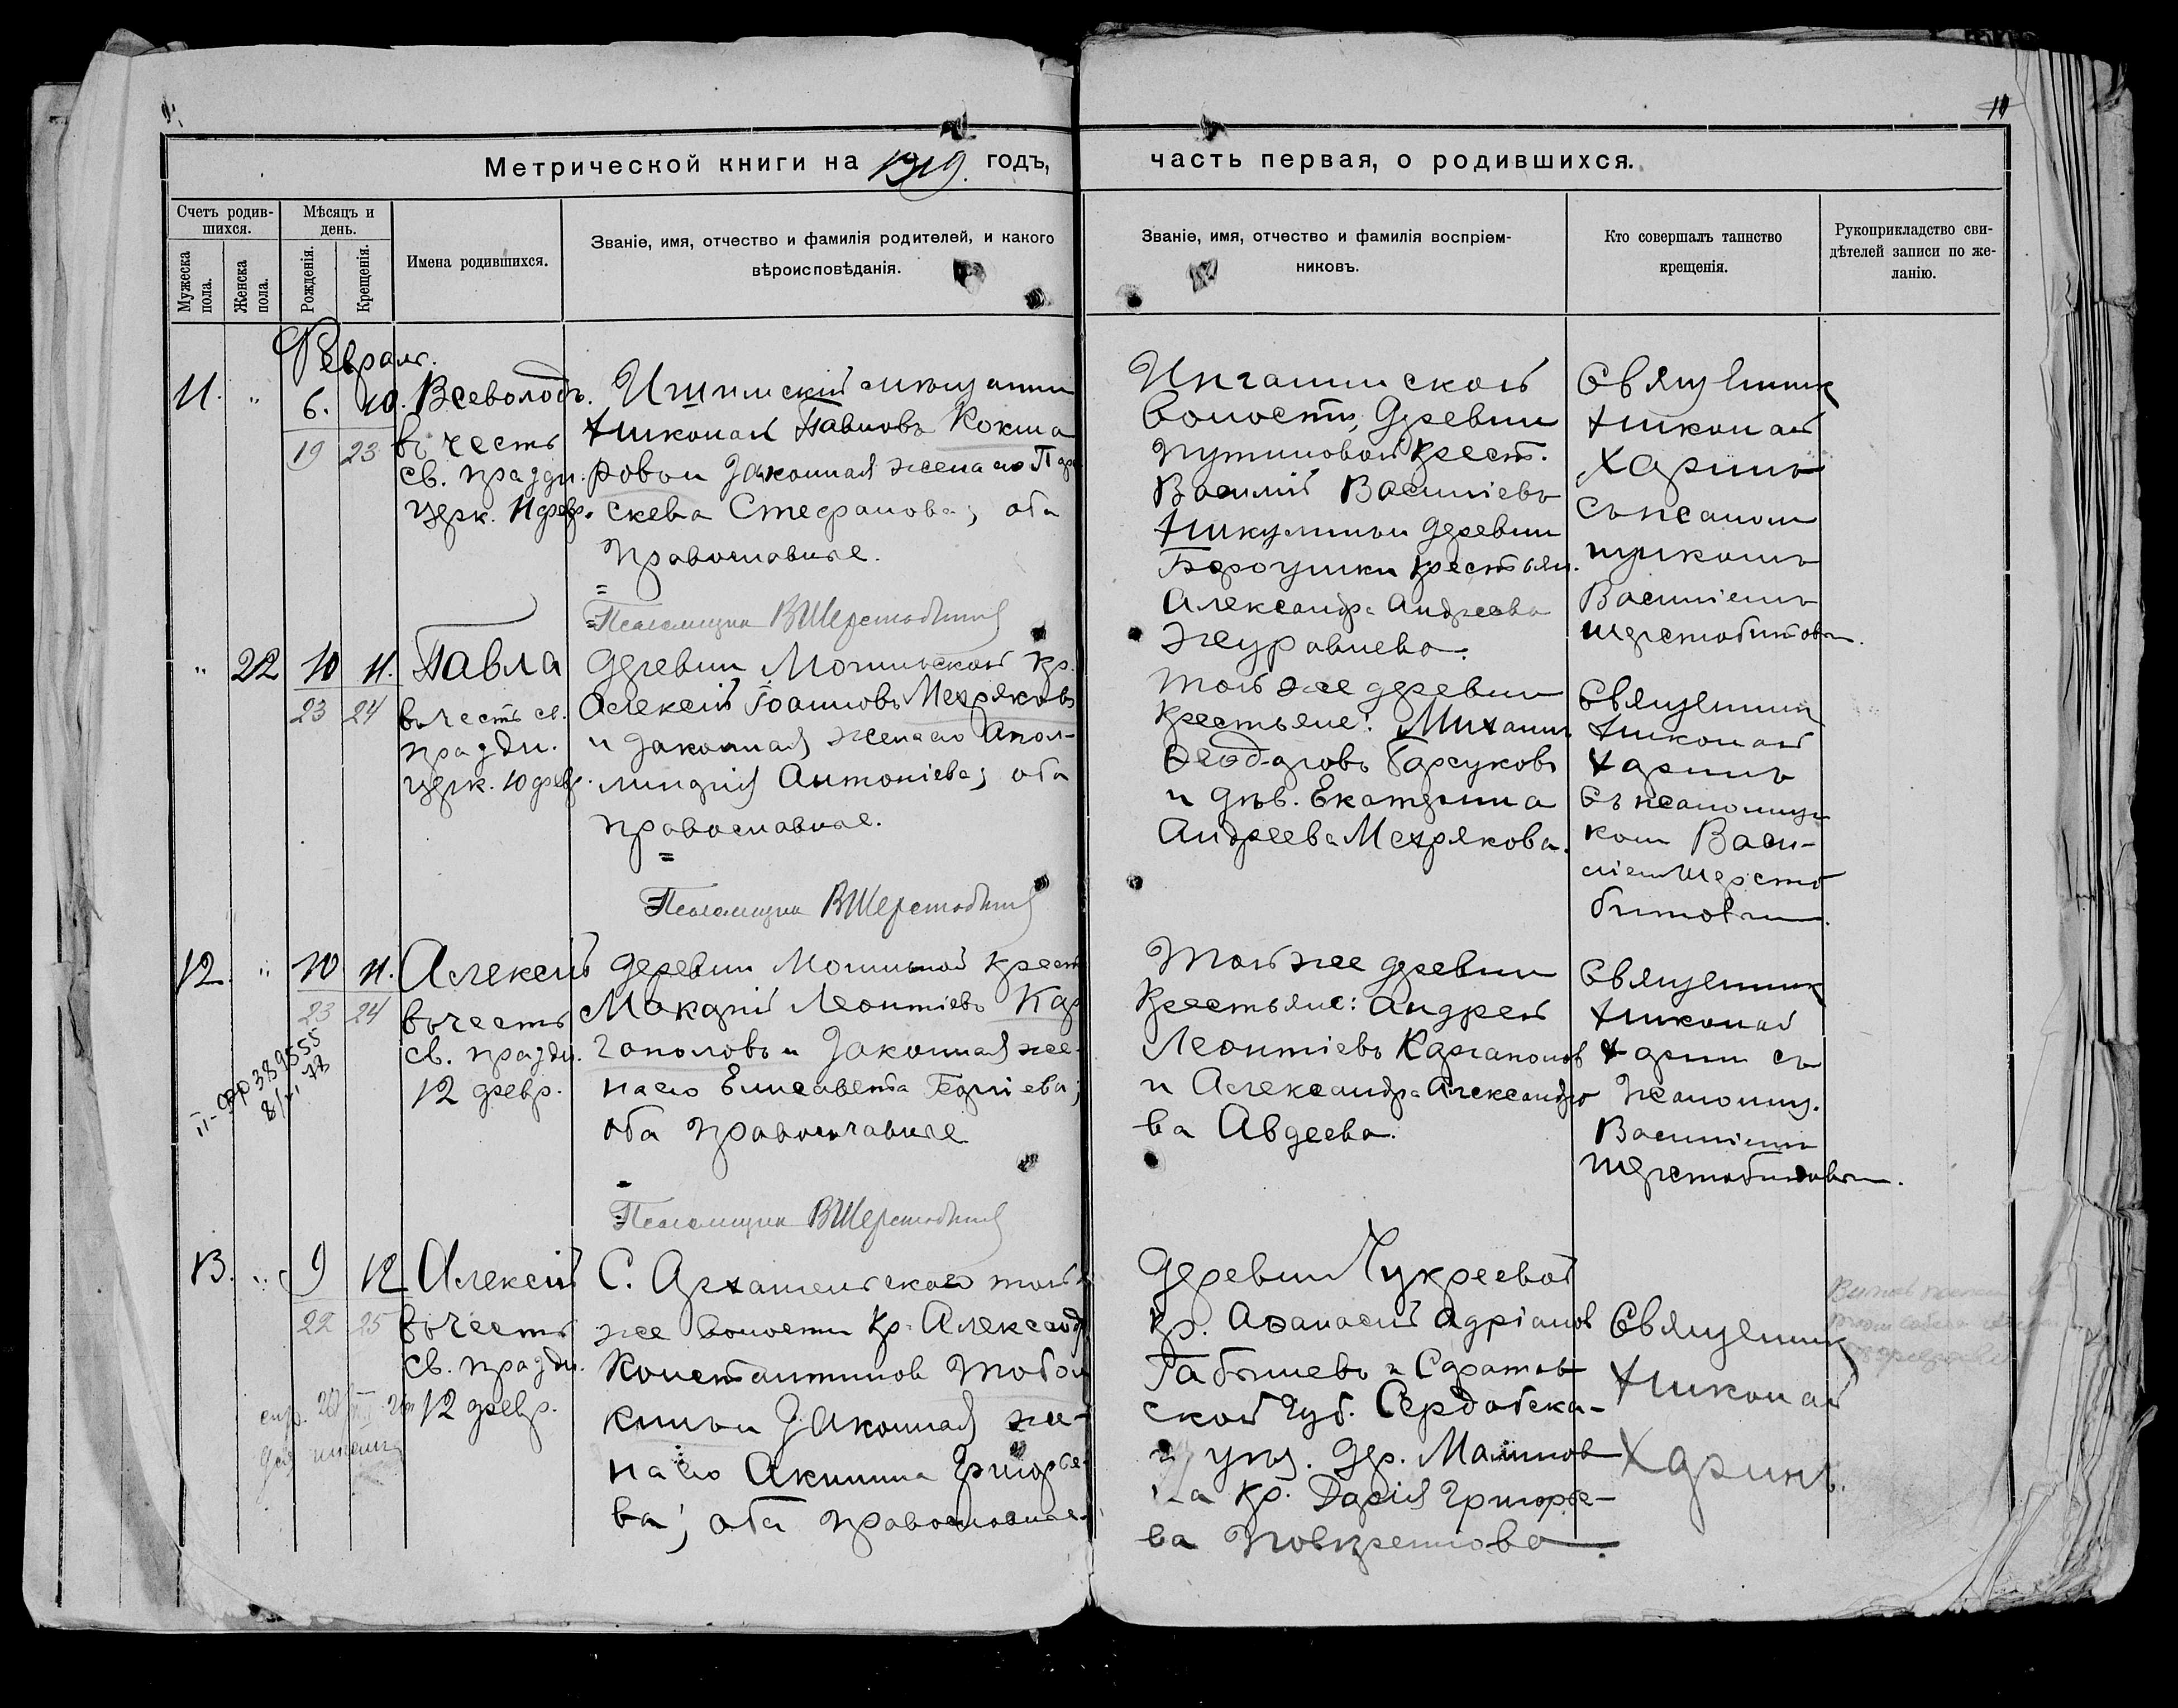 9.
10
Метрической книги на 1919. годъ,
часть первая, о родившихся.
Счетъ родив-
шихся.
Мужеска пола.
Женска пола.
Мѣсяцъ и
день.
Рожденія.
Крещенія.
Имена родившихся.
Званіе, имя, отчество и фамилія родителей, и какого
вѣроисповѣданія.
Званіе, имя, отчество и фамилія воспріем-
никовъ.
Кто совершалъ таинство
крещенія.
Рукоприкладство сви-
дѣтелей записи по же-
ланію.
Февраль.
11. " 6. 10. Всеволодъ.
19 23 въ честь
св. праздн.
церк. 11 февр.
Ишимскій мѣщанин
Николай Павловъ Кокша
ровъ и законная жена его Пара
скева Стефанова; оба
православные.
Псаломщик В Шерстобитов
Ингалинской
волости, деревни
Путиловой крест.
Василій Василіевъ
Никулинъ и деревни
крестьян.
Александра Андреева
Журавлева.
Священник
Николай
Харинъ
съ псалом
щикомъ
Василіемъ
Шерстобитовым.
" 22 10 11. Павла
23 24 въ честь св.
праздн.
церк. 10 февр.
Деревни Могильской кр.
Алексѣй Іоанновъ Мехряковъ
и законная жена его Апол-
линарія Антоніева; оба
православные.
Псаломщик В Шерстобитов
Той же деревни
крестьяне: Михаил
Ѳеодоровъ Барсуковъ
и дѣв. Екатерина
Андреева Мехрякова.
Священник
Николай
Харинъ
съ псаломщи
ком Васи-
ліем Шерсто
битовым.
12. " 10 11. Алексѣй
23 24 въ честь
св. праздн.
12 февр.
8/VI 77
Деревни Могильной крест
Макарій Леонтіевъ Кар
гаполовъ и законная же-
на его Елисавета Георгіева;
оба православные
Псаломщик В Шерстобитов
Той же деревни
крестьяне: Андрей
Леонтіевъ Каргаполов
и Александра Александро
ва Авдеева.
Священник
Николай
Харин съ
псаломщ.
Василіем
Шерстобитовым.
13. " 9 12 Алексѣй
22 25 въ честь
св. праздн.
12 февр.
С. Архангельскаго той
же волости кр. Александр
Константинов Тобол
кинъ и законная же-
на его Акилина Григорье-
ва; оба православные.
Деревни Чукреевой
кр. Аѳанасій Адріанов
Габышевъ и Саратов
ской губ. Сердобска-
го уѣз. дер. Малинов
ка кр. Дарія Григорье-
ва
Священник
Николай
Харинъ.